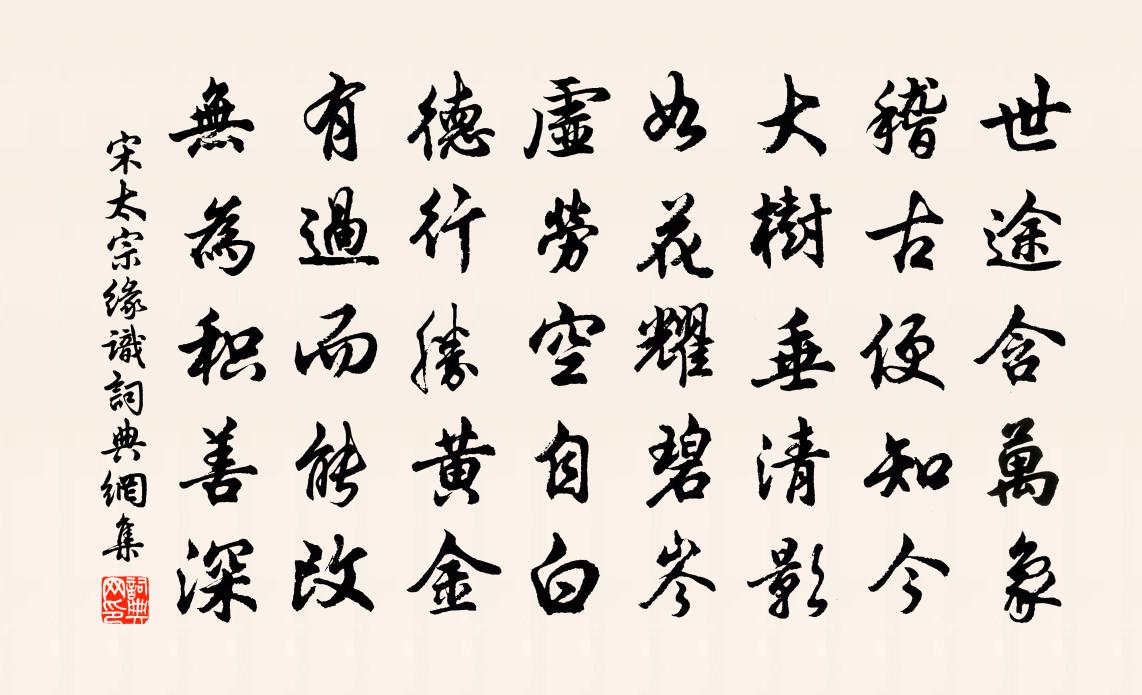 世途含萬象
稽古便知今
大樹垂清影
如花耀碧岑
虛勞空自白
德行勝黃金
有過而能改
無為积善深
宋太宗緣識詞典網集
詞典网印